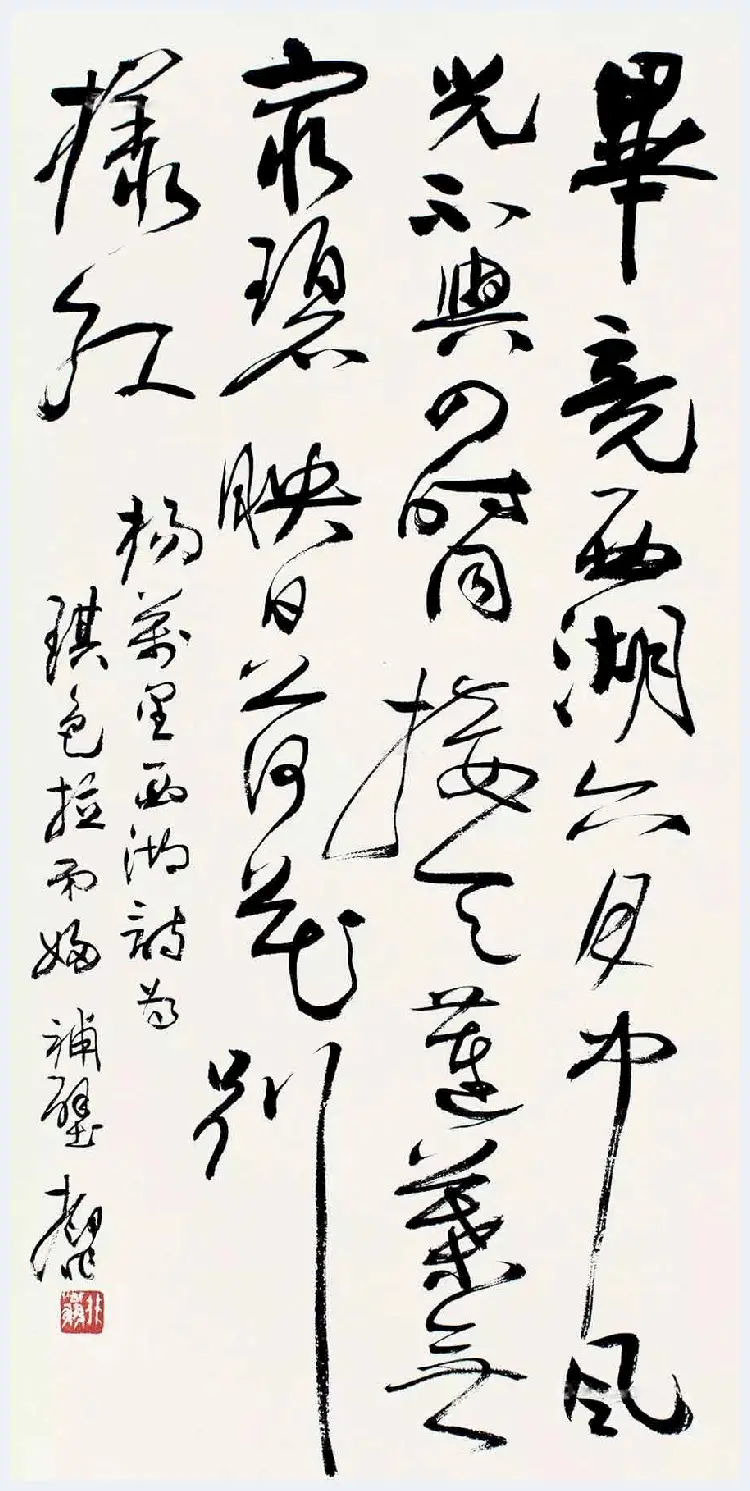 畢竟西湖六月中風
光不與四時同接天蓮葉無
窮碧映日荷花別
樣紅
楊萬里西湖詩為
琪色拉 補壁